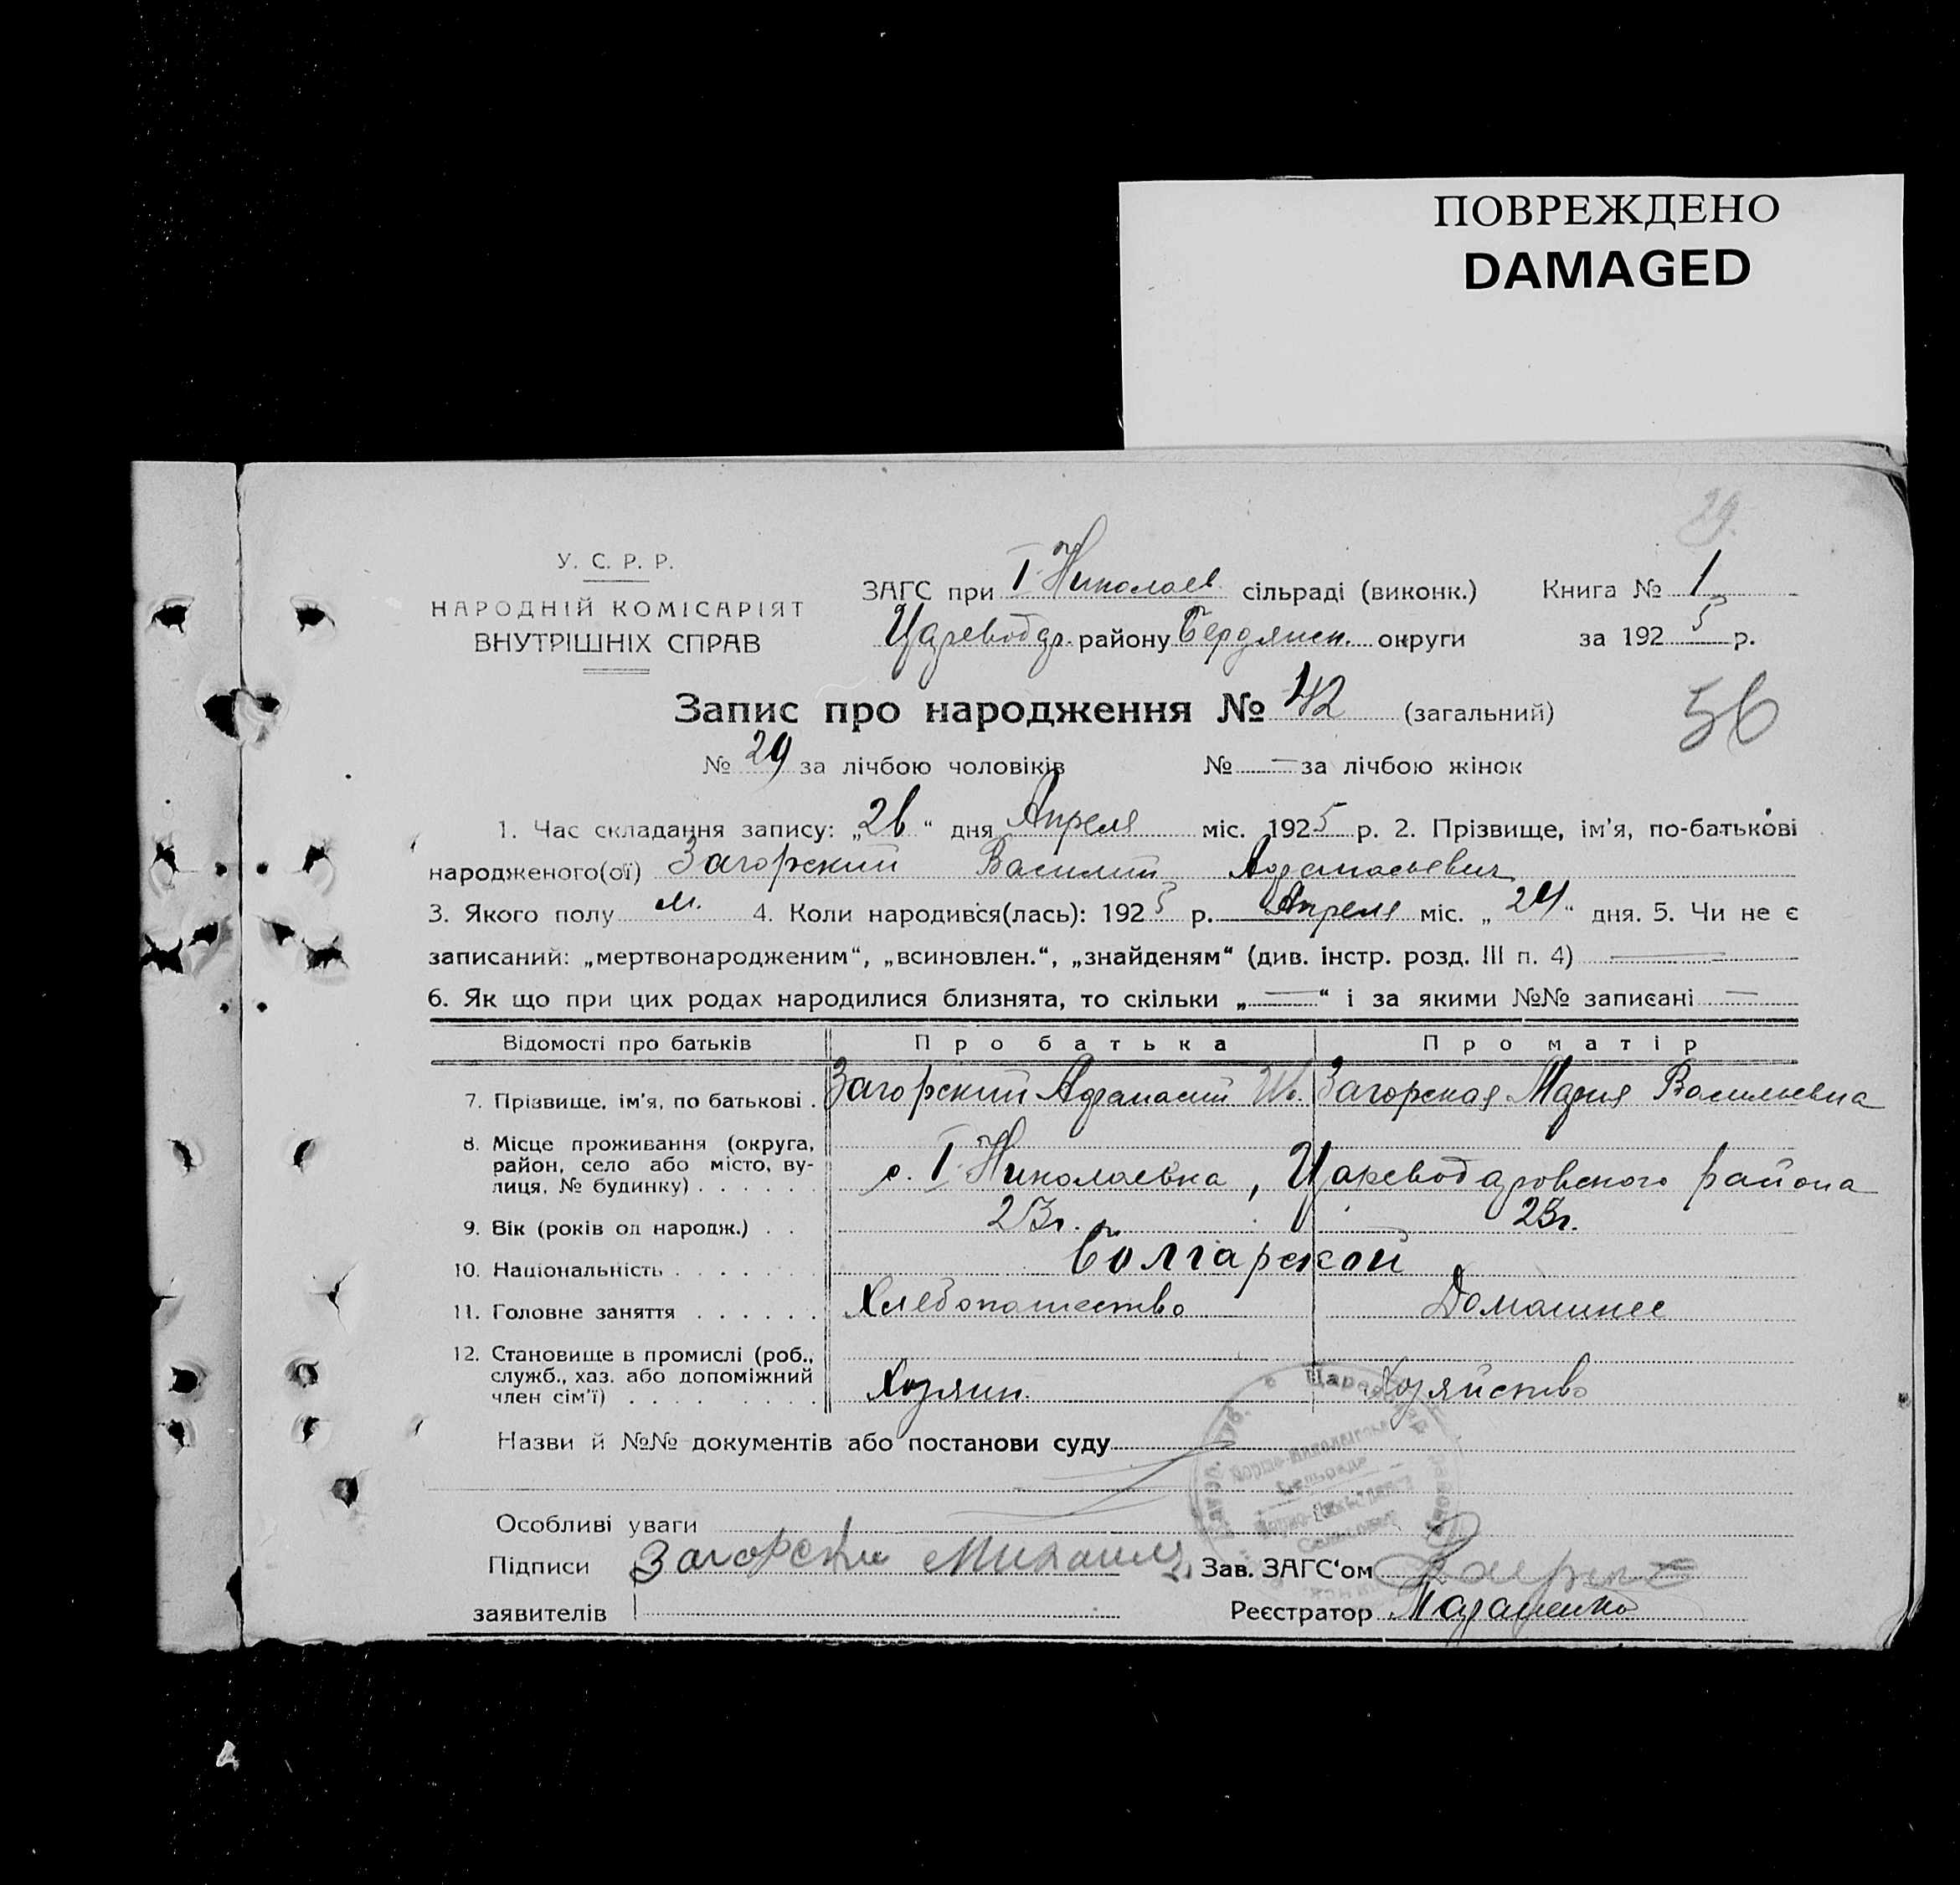 ПОВРЕЖДЕНО
DAMAGED
29.
У. С. Р. Р.
НАРОДНІЙ КОМІСАРІЯТ
ВНУТРІШНІХ СПРАВ
ЗАГС при I Николаев. сільраді (виконк.) Книга № 1
Цареводар. району Бердянск. округи за 1925 р.
Запис про народження № 42 (загальний)
56
№ 29 за лічбою чоловіків № — за лічбою жінок
1. Час складання запису: „26“ дня Апреля міс. 1925 р. 2. Прізвище, ім’я, по-батькові
народженого(ої) Загорский Василий Афанасьевич
3. Якого полу м. 4. Коли народився(лась): 1925 р. Апреля міс. „24“ дня. 5. Чи не є
записаний: „мертвонародженим“, „всиновлен.“, „знайденям“ (див. інстр. розд. III п. 4) —
6. Як що при цих родах народилися близнята, то скільки „—“ і за якими №№ записані —
Відомості про батьків Про батька Про матір
7. Прізвище, ім’я, по батькові . Загорский Афанасий Ив. Загорская Мария Васильевна
8. Місце проживання (округа,
район, село або місто, ву-
лиця, № будинку) . . . . . . с. I Николаевка, Цареводаровского района
9. Вік (років од народж.) . . 23г. 23г.
10. Національність . . . . . . . Болгарской
11. Головне заняття . . . . . . Хлебопашество Домашнее
12. Становище в промислі (роб.,
служб., хаз. або допоміжний
член сім’ї) . . . . . . . Хозяин. Хозяйство
Назви й №№ документів або постанови суду
Особливі уваги
Підписи Загорски Михаил, Зав. ЗАГС‘ом
заявителів Реєстратор